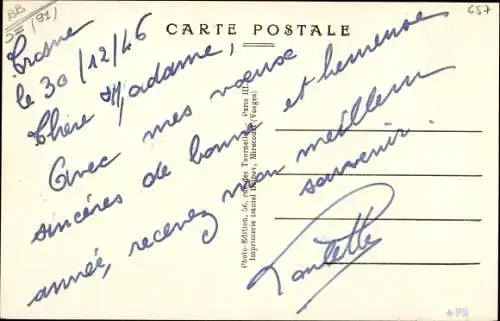 BB
(91)
657
CARTE POSTALE
Crosne
le 30/12/46
Chère Madame,
Avec mes vœux
sincères de bonne et heureuse
année, recevez mon meilleur
souvenir.
Paulette
Photo-Edition, 56, rue des Tournelles, Paris III
Imprimerie Daniel Delbov, Mirecourt (Vosges)